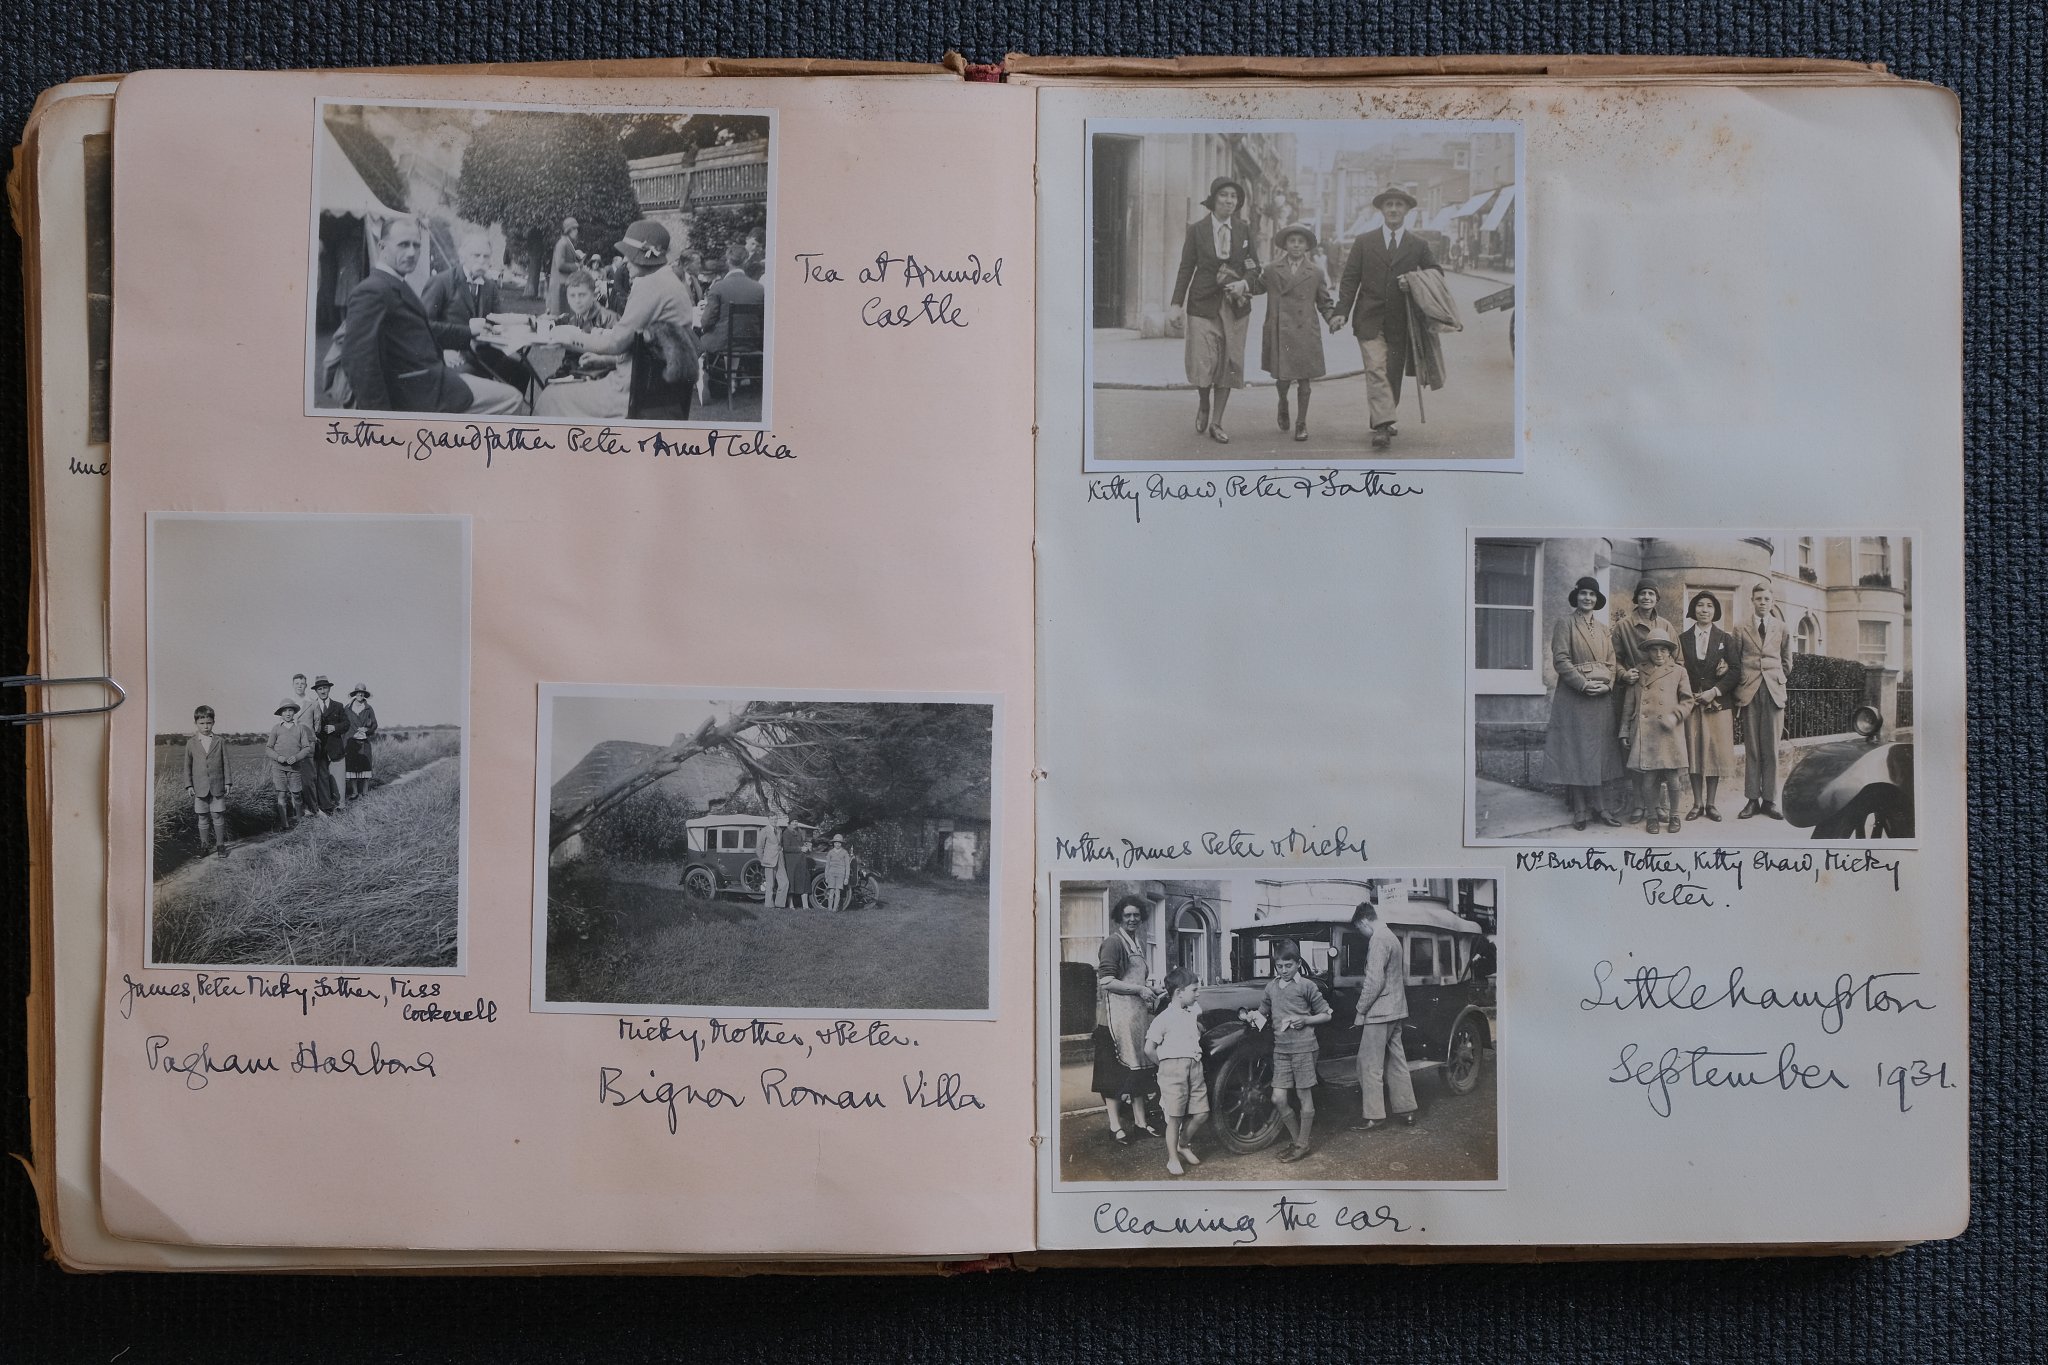 Tea at Arundel
Castle
Father, grandfather Peter & Aunt Celia
James, Peter Micky, Father, Miss
Cockerell
Pagham Harbour
Micky, Mother, & Peter.
Bignor Roman Villa
Kitty Shaw, Peter & Father
Mrs Burton, Mother, Kitty Shaw, Micky
Peter.
Mother, James Peter & Micky
Cleaning the car.
Littlehampton
September 1931.